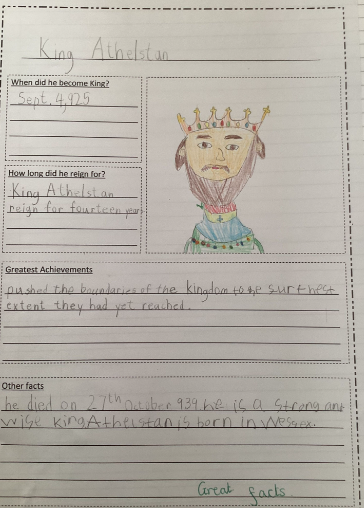 King Athelstan
When did he become King?
Sept, 4, 925
How long did he reign for?
King Athelstan
reign for fourteen year
Greatest Achievements
pushed the boundaries of the kingdom to the surthest
extent they had yet reached.
Other facts
he died on 27th October 939 he is a strong and
wise king Athelstan is born in Wessex.
Great facts